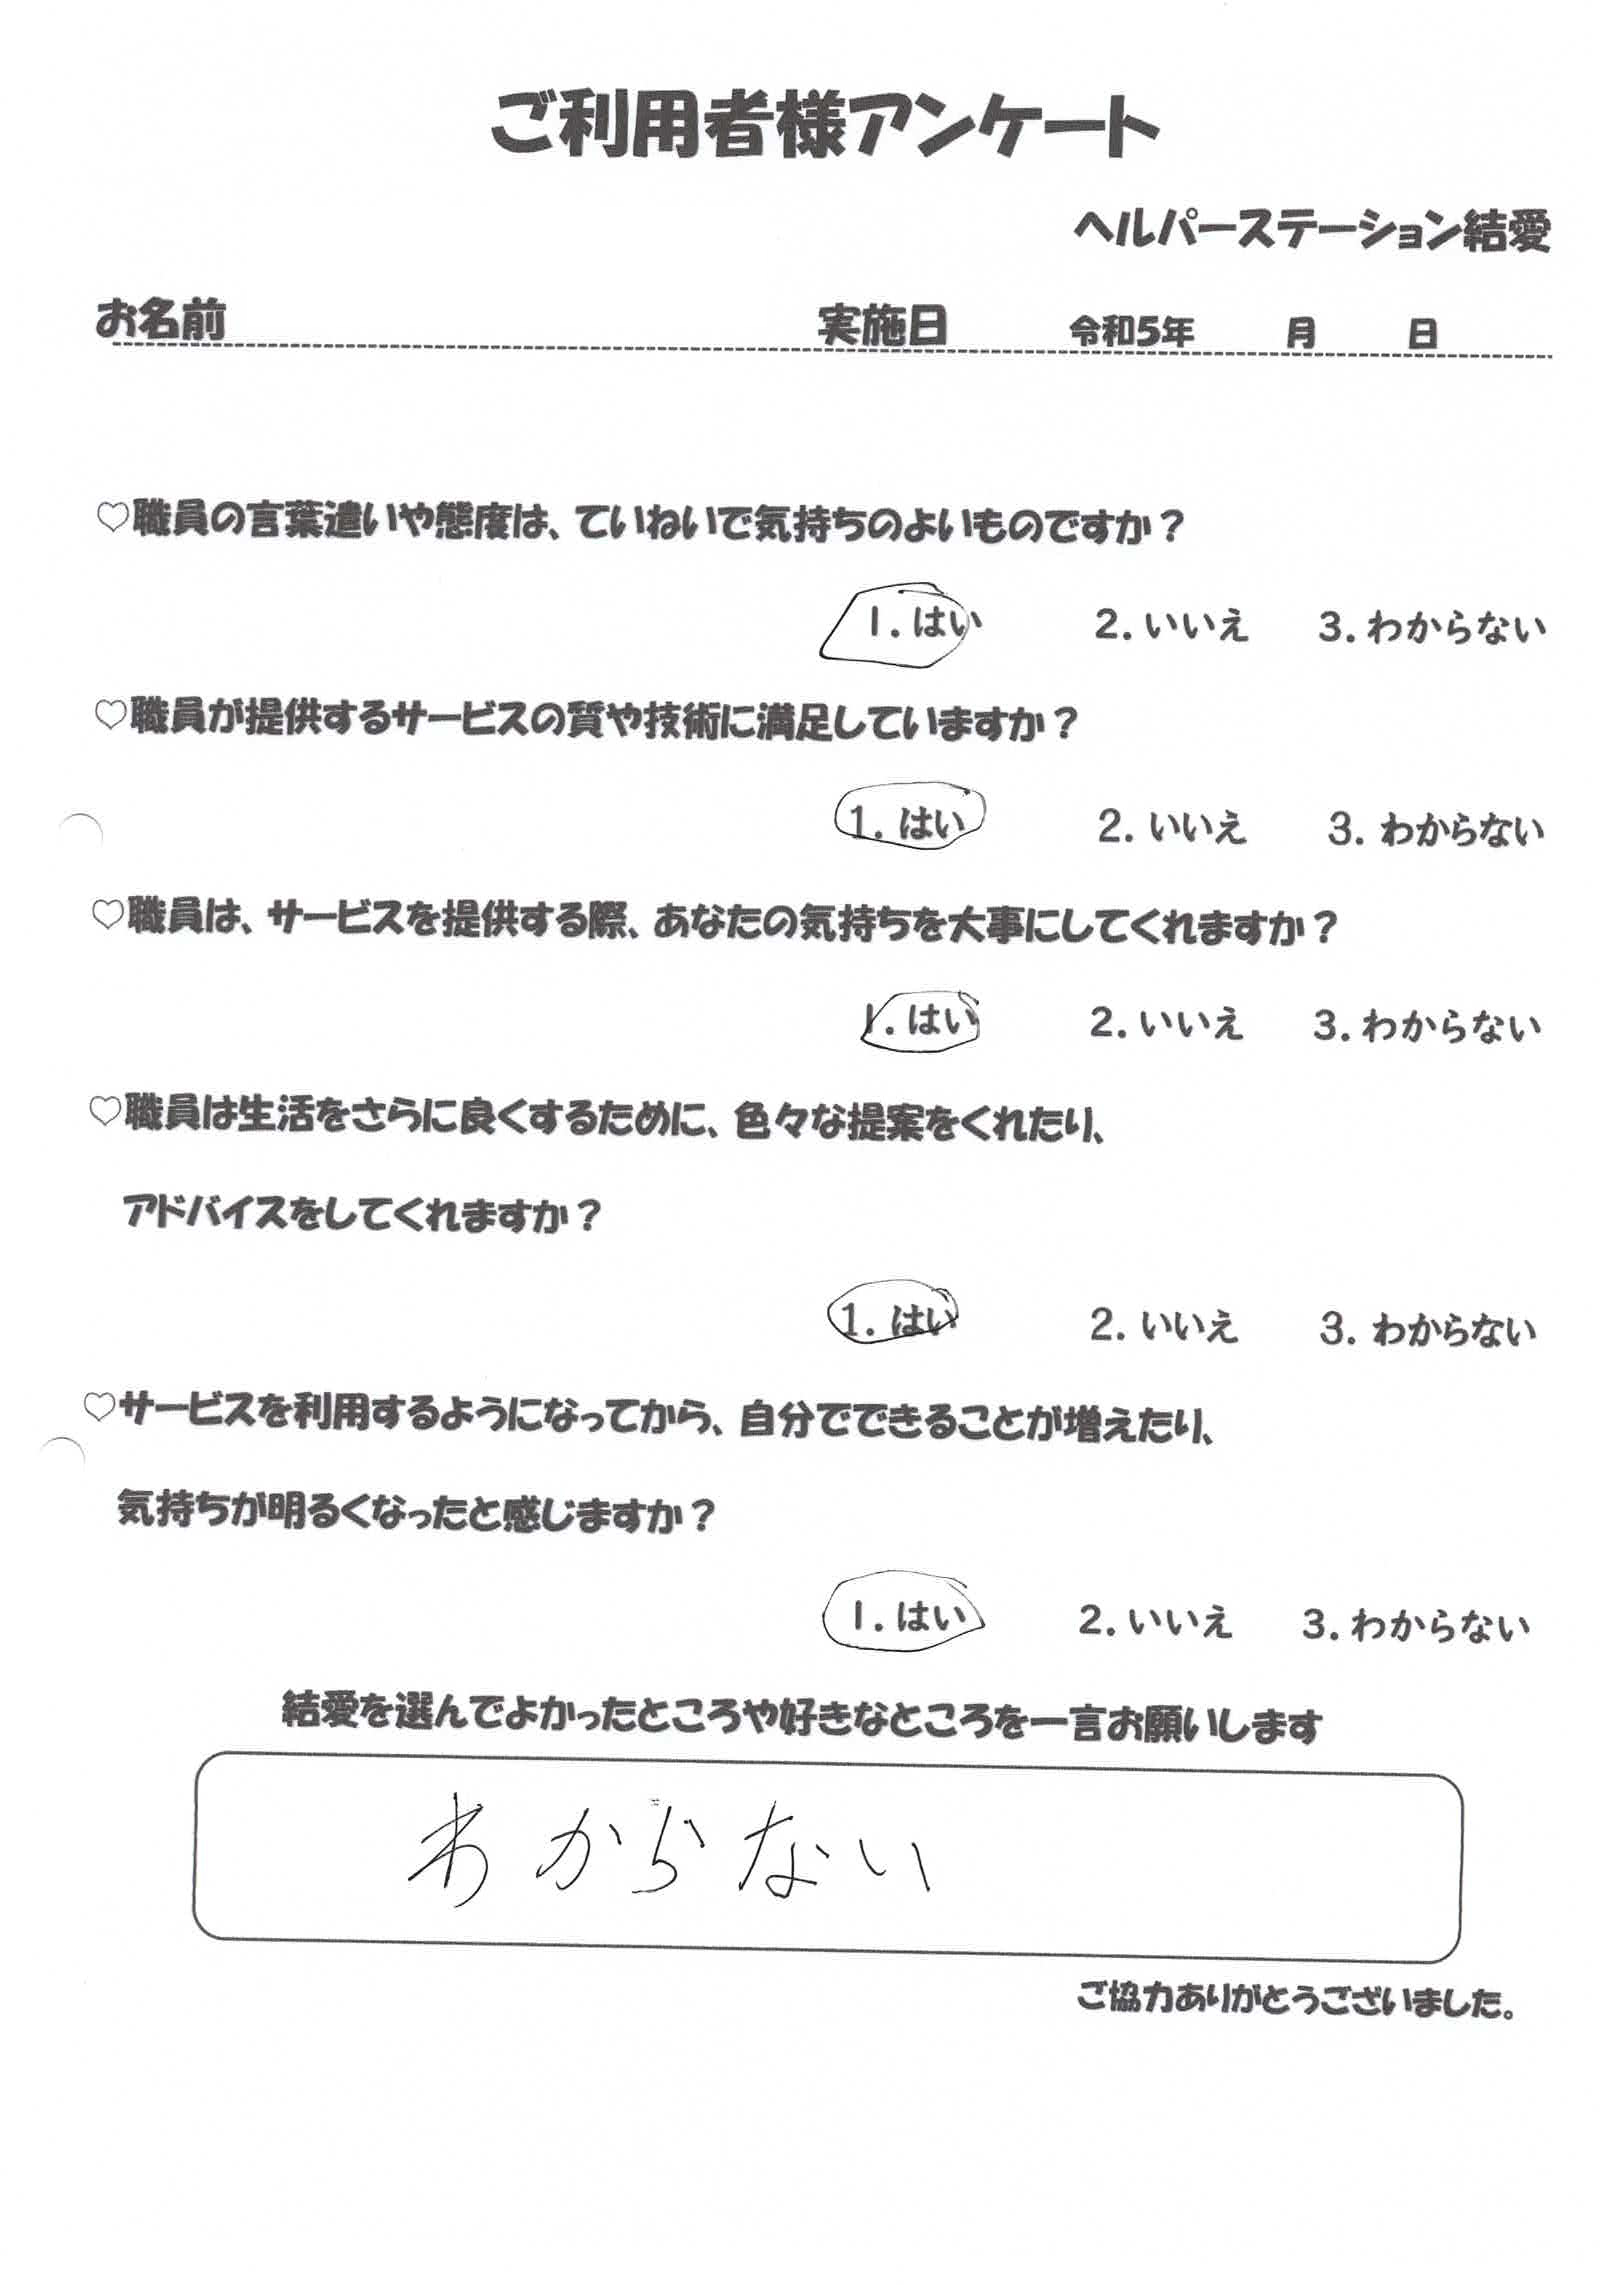 ご利用者様アンケート
ヘルパーステーション結愛
お名前 実施日 令和5年 月 日
♡職員の言葉遣いや態度は、ていねいで気持ちのよいものですか？
1. はい 2. いいえ 3. わからない
♡職員が提供するサービスの質や技術に満足していますか？
1. はい 2. いいえ 3. わからない
♡職員は、サービスを提供する際、あなたの気持ちを大事にしてくれますか？
1. はい 2. いいえ 3. わからない
♡職員は生活をさらに良くするために、色々な提案をくれたり、
アドバイスをしてくれますか？
1. はい 2. いいえ 3. わからない
♡サービスを利用するようになってから、自分でできることが増えたり、
気持ちが明るくなったと感じますか？
1. はい 2. いいえ 3. わからない
結愛を選んでよかったところや好きなところを一言お願いします
わからない
ご協力ありがとうございました。